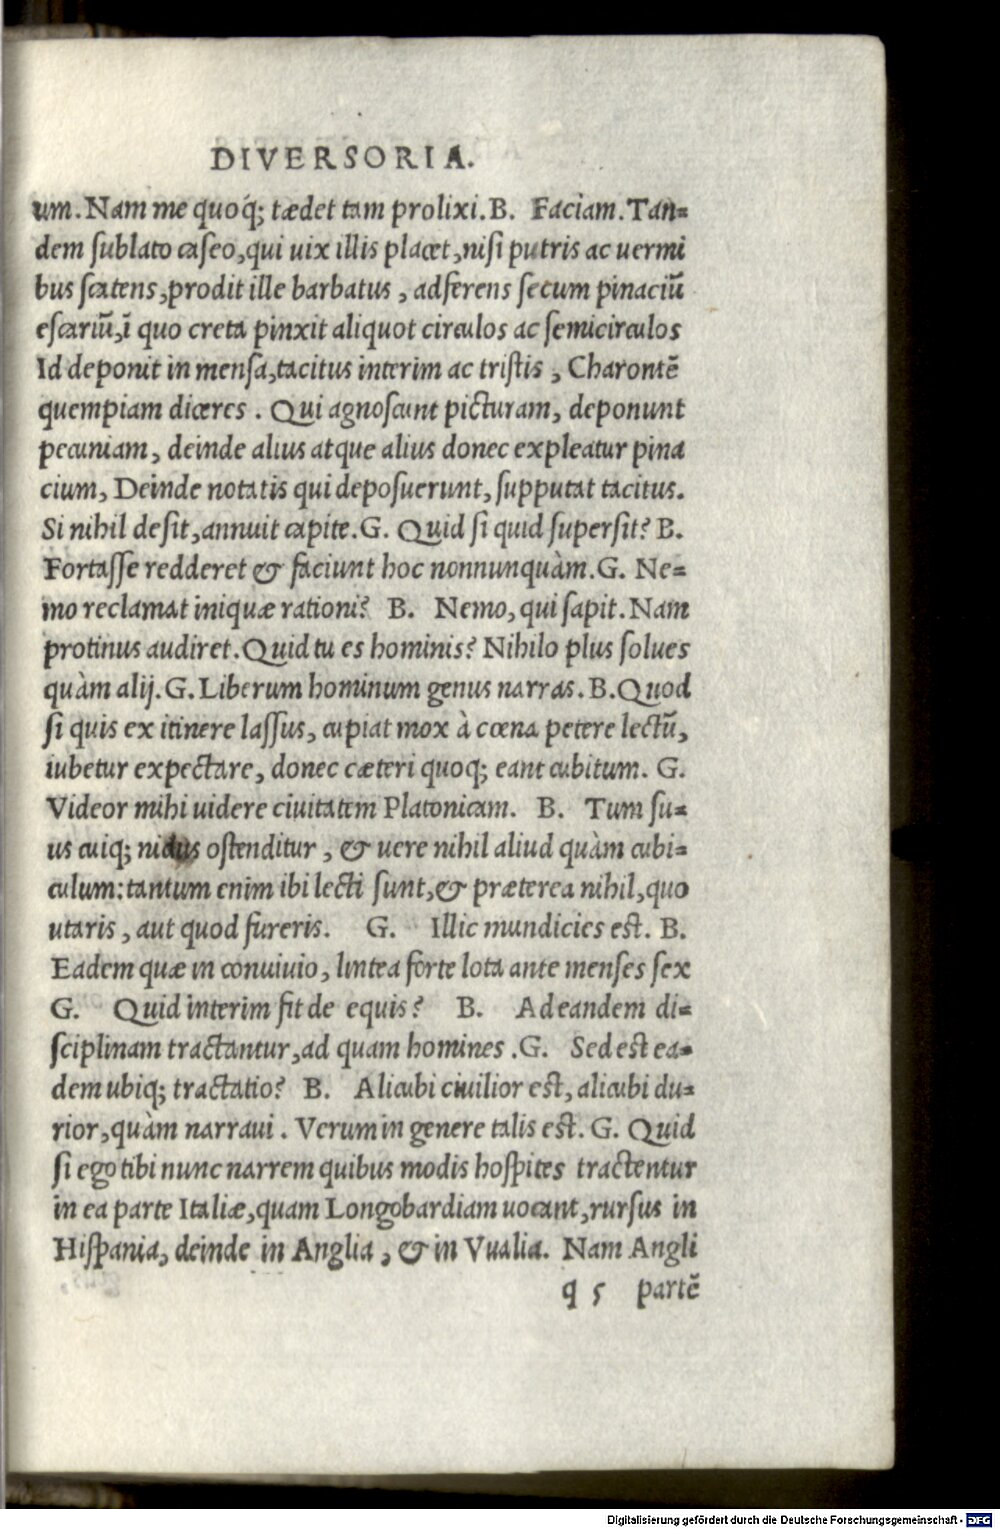 DIVERSORIA.
um. Nam me quoq; tædet tam prolixi. B. Faciam. Tan=
dem sublato caseo, qui uix illis placet, nisi putris ac uermi
bus scatens, prodit ille barbatus, adferens secum pinaciū
escariū, ī quo creta pinxit aliquot circulos ac semicirculos
Id deponit in mensa, tacitus interim ac tristis, Charontē
quempiam diceres. Qui agnoscunt picturam, deponunt
pecuniam, deinde alius atque alius donec expleatur pina
cium, Deinde notatis qui deposuerunt, supputat tacitus.
Si nihil desit, annuit capite. G. Quid si quid supersit? B.
Fortasse redderet & faciunt hoc nonnunquàm. G. Ne=
mo reclamat iniquæ rationi? B. Nemo, qui sapit. Nam
protinus audiret. Quid tu es hominis? Nihilo plus solues
quàm alij. G. Liberum hominum genus narras. B. Quod
si quis ex itinere lassus, cupiat mox à cœna petere lectū,
iubetur expectare, donec cæteri quoq; eant cubitum. G.
Videor mihi uidere ciuitatem Platonicam. B. Tum su=
us cuiq; nidus ostenditur, & uere nihil aliud quàm cubi=
culum: tantum enim ibi lecti sunt, & præterea nihil, quo
utaris, aut quod fureris. G. Illic mundicies est. B.
Eadem quæ in conuiuio, lintea forte lota ante menses sex
G. Quid interim fit de equis? B. Ad eandem di=
sciplinam tractantur, ad quam homines. G. Sed est ea=
dem ubiq; tractatio? B. Alicubi ciuilior est, alicubi du=
rior, quàm narraui. Verum in genere talis est. G. Quid
si ego tibi nunc narrem quibus modis hospites tractentur
in ea parte Italiæ, quam Longobardiam uocant, rursus in
Hispania, deinde in Anglia, & in Vualia. Nam Angli
q 5 partē
Digitalisierung gefördert durch die Deutsche Forschungsgemeinschaft - DFG